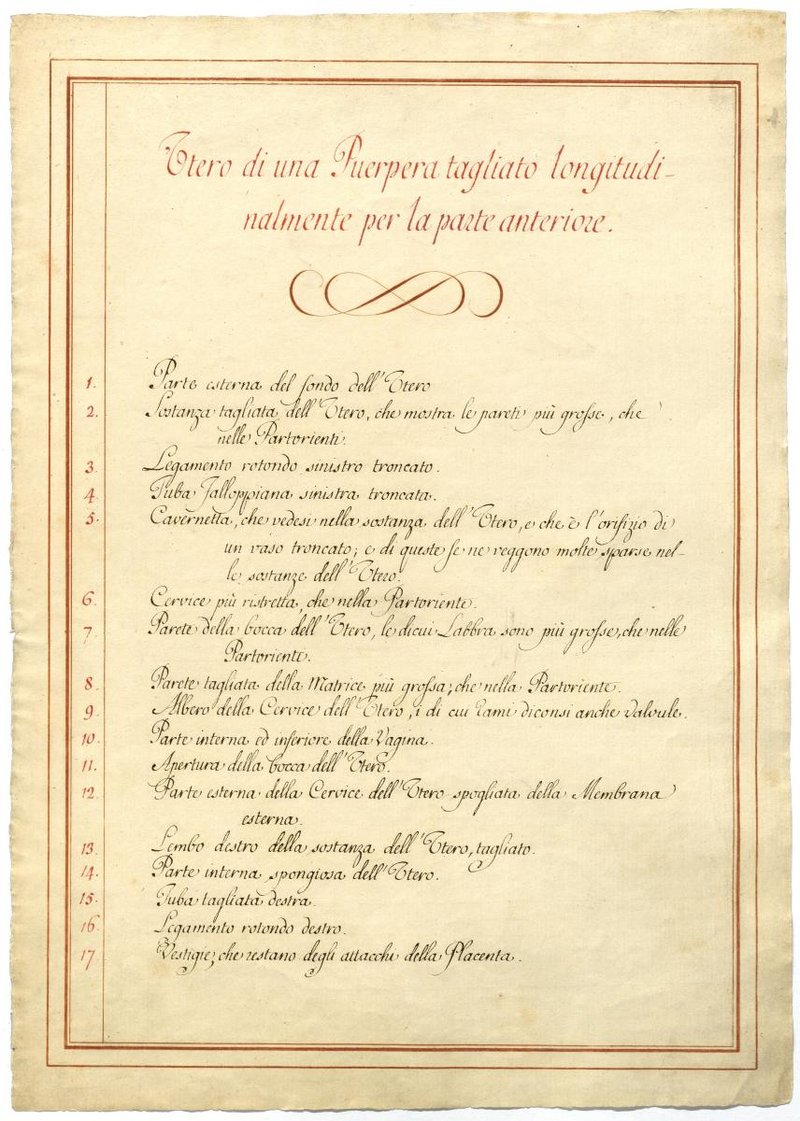 Utero di una Puerpera tagliato longitudi-
nalmente per la parte anteriore.
1. Parte esterna del fondo dell'Utero
2. Sostanza tagliata dell'Utero, che mostra le pareti più grosse, che
nelle Partorienti.
3. Legamento rotondo sinistro troncato.
4. Tuba Falloppiana sinistra troncata.
5. Cavernetta, che vedesi nella sostanza dell'Utero, e che è l'orifizio di
un vaso troncato; e di queste se ne veggono molte sparse nel-
le sostanze dell'Utero.
6. Cervice più ristretta, che nella Partoriente.
7. Parete della bocca dell'Utero, le dicui Labbra sono più grosse, che nelle
Partorienti.
8. Parete tagliata della Matrice più grossa, che nella Partoriente.
9. Albero della Cervice dell'Utero, i di cui rami diconsi anche valvule.
10. Parte interna ed inferiore della Vagina.
11. Apertura della bocca dell'Utero.
12. Parte esterna della Cervice dell'Utero spogliata della Membrana
esterna.
13. Lembo destro della sostanza dell'Utero, tagliato.
14. Parte interna spongiosa dell'Utero.
15. Tuba tagliata destra.
16. Legamento rotondo destro.
17. Vestigie, che restano degli attacchi della Placenta.